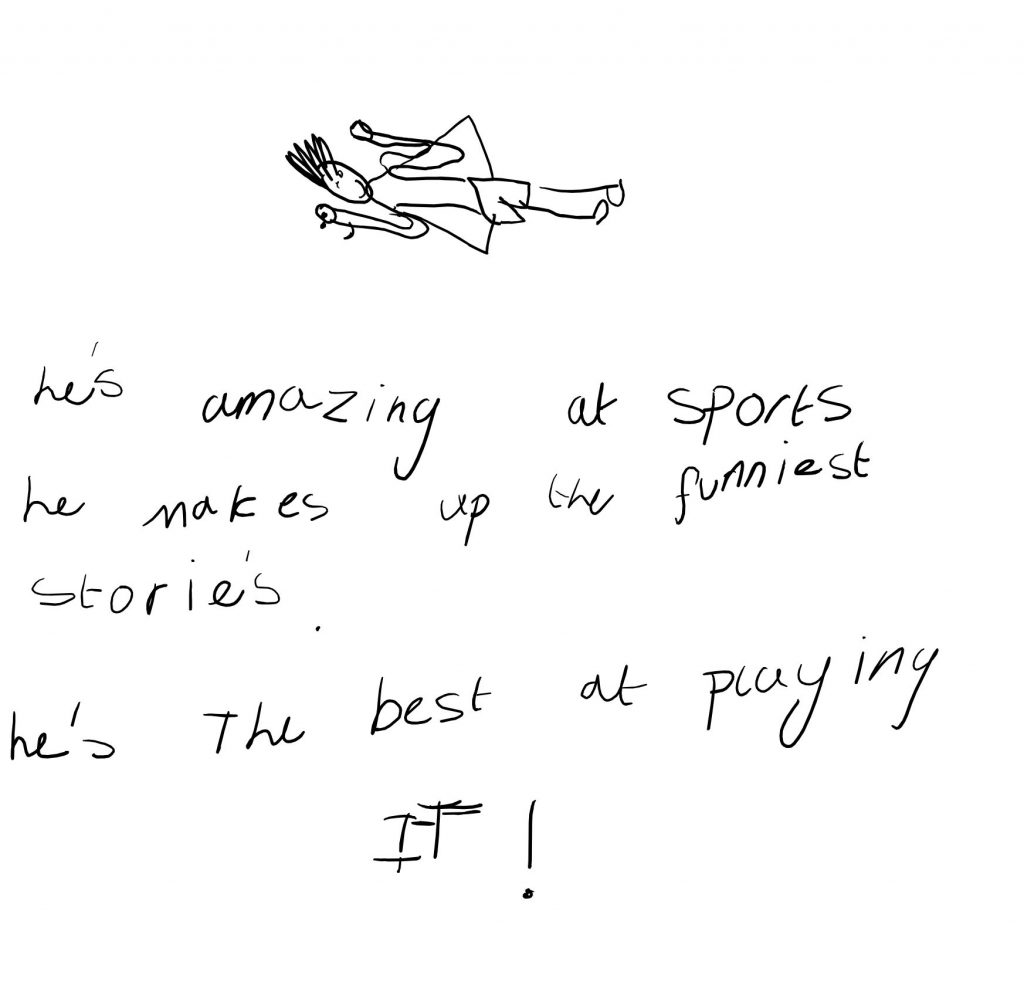 he's amazing at sports
he makes up the funniest
storie's.
he's The best at playing
IT!